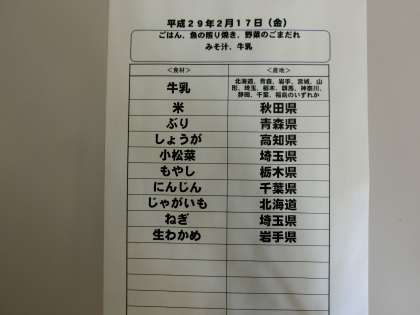 平成29年2月17日（金）
ごはん、魚の照り焼き、野菜のごまだれ
みそ汁、牛乳
＜食材＞ ＜産地＞
牛乳 北海道、青森、岩手、宮城、山形、埼玉、栃木、群馬、神奈川、静岡、千葉、福島のいずれか
米 秋田県
ぶり 青森県
しょうが 高知県
小松菜 埼玉県
もやし 栃木県
にんじん 千葉県
じゃがいも 北海道
ねぎ 埼玉県
生わかめ 岩手県